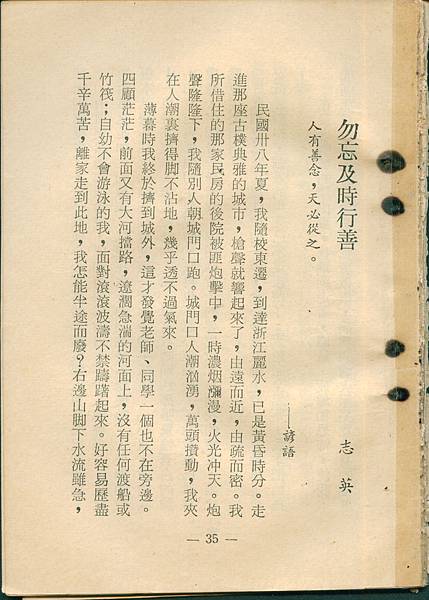 勿忘及時行善
志英
人有善念，天必從之。
——諺語
民國卅八年夏，我隨校東遷，到達浙江麗水，已是黃昏時分。走
進那座古樸典雅的城市，槍聲就響起來了，由遠而近，由疏而密。我
所借住的那家民房的後院被匪炮擊中，一時濃烟瀰漫，火光冲天。炮
聲隆隆下，我隨別人朝城門口跑。城門口人潮洶湧，萬頭攢動，我夾
在人潮裏擠得脚不沾地，幾乎透不過氣來。
薄暮時我終於擠到城外，這才發覺老師、同學一個也不在旁邊。
四顧茫茫，前面又有大河擋路，遼濶急湍的河面上，沒有任何渡船或
竹筏；自幼不會游泳的我，面對滾滾波濤不禁躊躇起來。好容易歷盡
千辛萬苦，離家走到此地，我怎能半途而廢？右邊山脚下水流雖急，
— 35 —